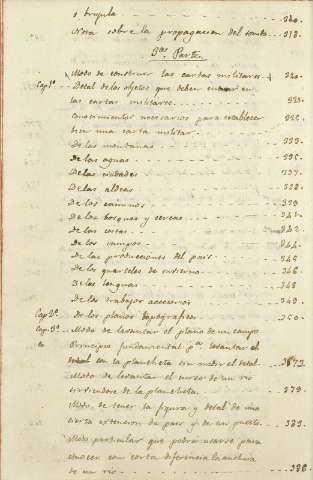 1 brujula - - - 320.
Nota sobre la propagacion del - - 318.
3.a Parte
Modo de construir las cartas militares - 320.
Cap 1.o Detal de los objetos que deben entrar en
las cartas militares - - - 323.
Conocimientos necesarios para establecer - 325.
bien una carta militar -
De las montanas - - - 333.
De las aguas - - - 335.
De las ciudades - - - 337.
De las aldeas - - - 338.
De los caminos - - - 339
De los bosques y cercas - - - 341.
De las casas - - - 342.
De los campos - - - 344.
De las producciones del pais - - - 345
De los quarteles de invierno - - - 346
De las lenguas - - - 348
De los trabajos accesorios - - - 349.
Cap 2.o De los planos topograficos - - - 350.
Cap 3.o Modo de levantar el plano de un campo
Principio fundamental p.a levantar el
detal con la plancheta sin medir el total - - 373
Modo de levantar el curso de un rio
sirviendose de la plancheta - - - 379.
Modo de tener la figura y detal de una
cierta extension de pais y de un puesto - - 383.
Modo particular que podrá usarse para
conocer con corta diferencia la anchura
de un rio - - - 386.